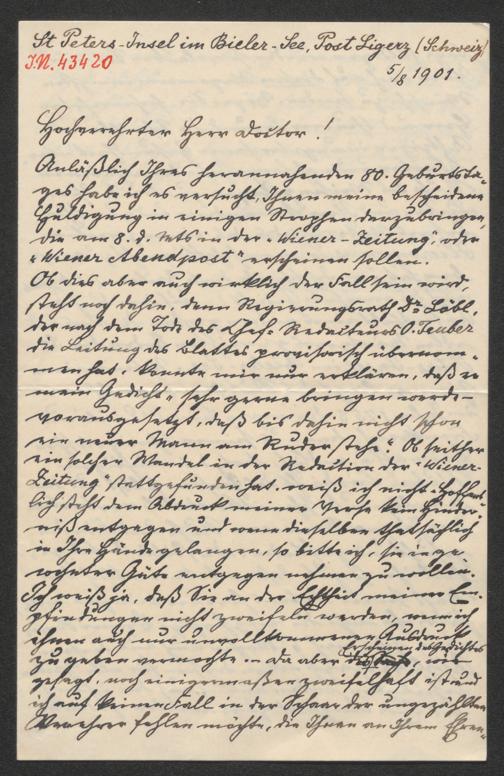 St Peters-Insel im Bieler-See, Post Ligerz (Schweiz)
I.N. 43420
5/8 1901.
Hochverehrter Herr Doctor!
Anläßlich Ihres herannahenden 80. Geburtsta-
ges habe ich es versucht, Ihnen meine bescheidene
Huldigung in einigen Strophen darzubringen,
die am 8. d. Mts in der "Wiener-Zeitung" oder
"Wiener Abendpost" erscheinen sollen.
Ob dies aber auch wirklich der Fall sein wird,
steht noch dahin, denn Regierungsrath Dr. Löbl,
der nach dem Tode des Chef-Redacteurs O. Teuber
die Leitung des Blattes provisorisch übernom-
men hat, konnte mir nur erklären, daß er
mein Gedicht "sehr gerne bringen werde -
vorausgesetzt, daß bis dahin nicht schon
ein neuer Mann am Ruder stehe". Ob seither
ein solcher Wandel in der Redaction der "Wiener-
Zeitung" stattgefunden hat, weiß ich nicht. Hoffent-
lich steht dem Abdruck meiner Verse kein Hinder-
niß entgegen und wenn dieselben thatsächlich
in Ihre Hände gelangen, so bitte ich, sie in ge-
wohnter Güte entgegen nehmen zu wollen.
Ich weiß ja, daß Sie an der Echtheit meiner Em-
pfindungen nicht zweifeln werden, wenn ich
ihnen auch nur unvollkommenen Ausdruck
zu geben vermochte. - Da aber das Erscheinen des Gedichtes, wie
gesagt, noch einigermaßen zweifelhaft ist und
ich auf keinen Fall in der Schaar der ungezählten
Verehrer fehlen möchte, die Ihnen an Ihrem Ehren-